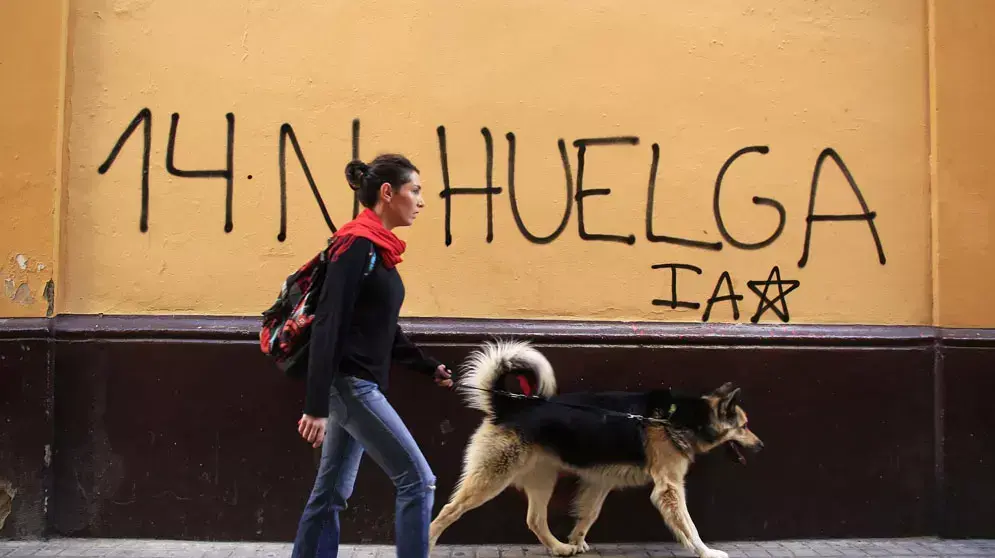 14·N HUELGA
IA☆